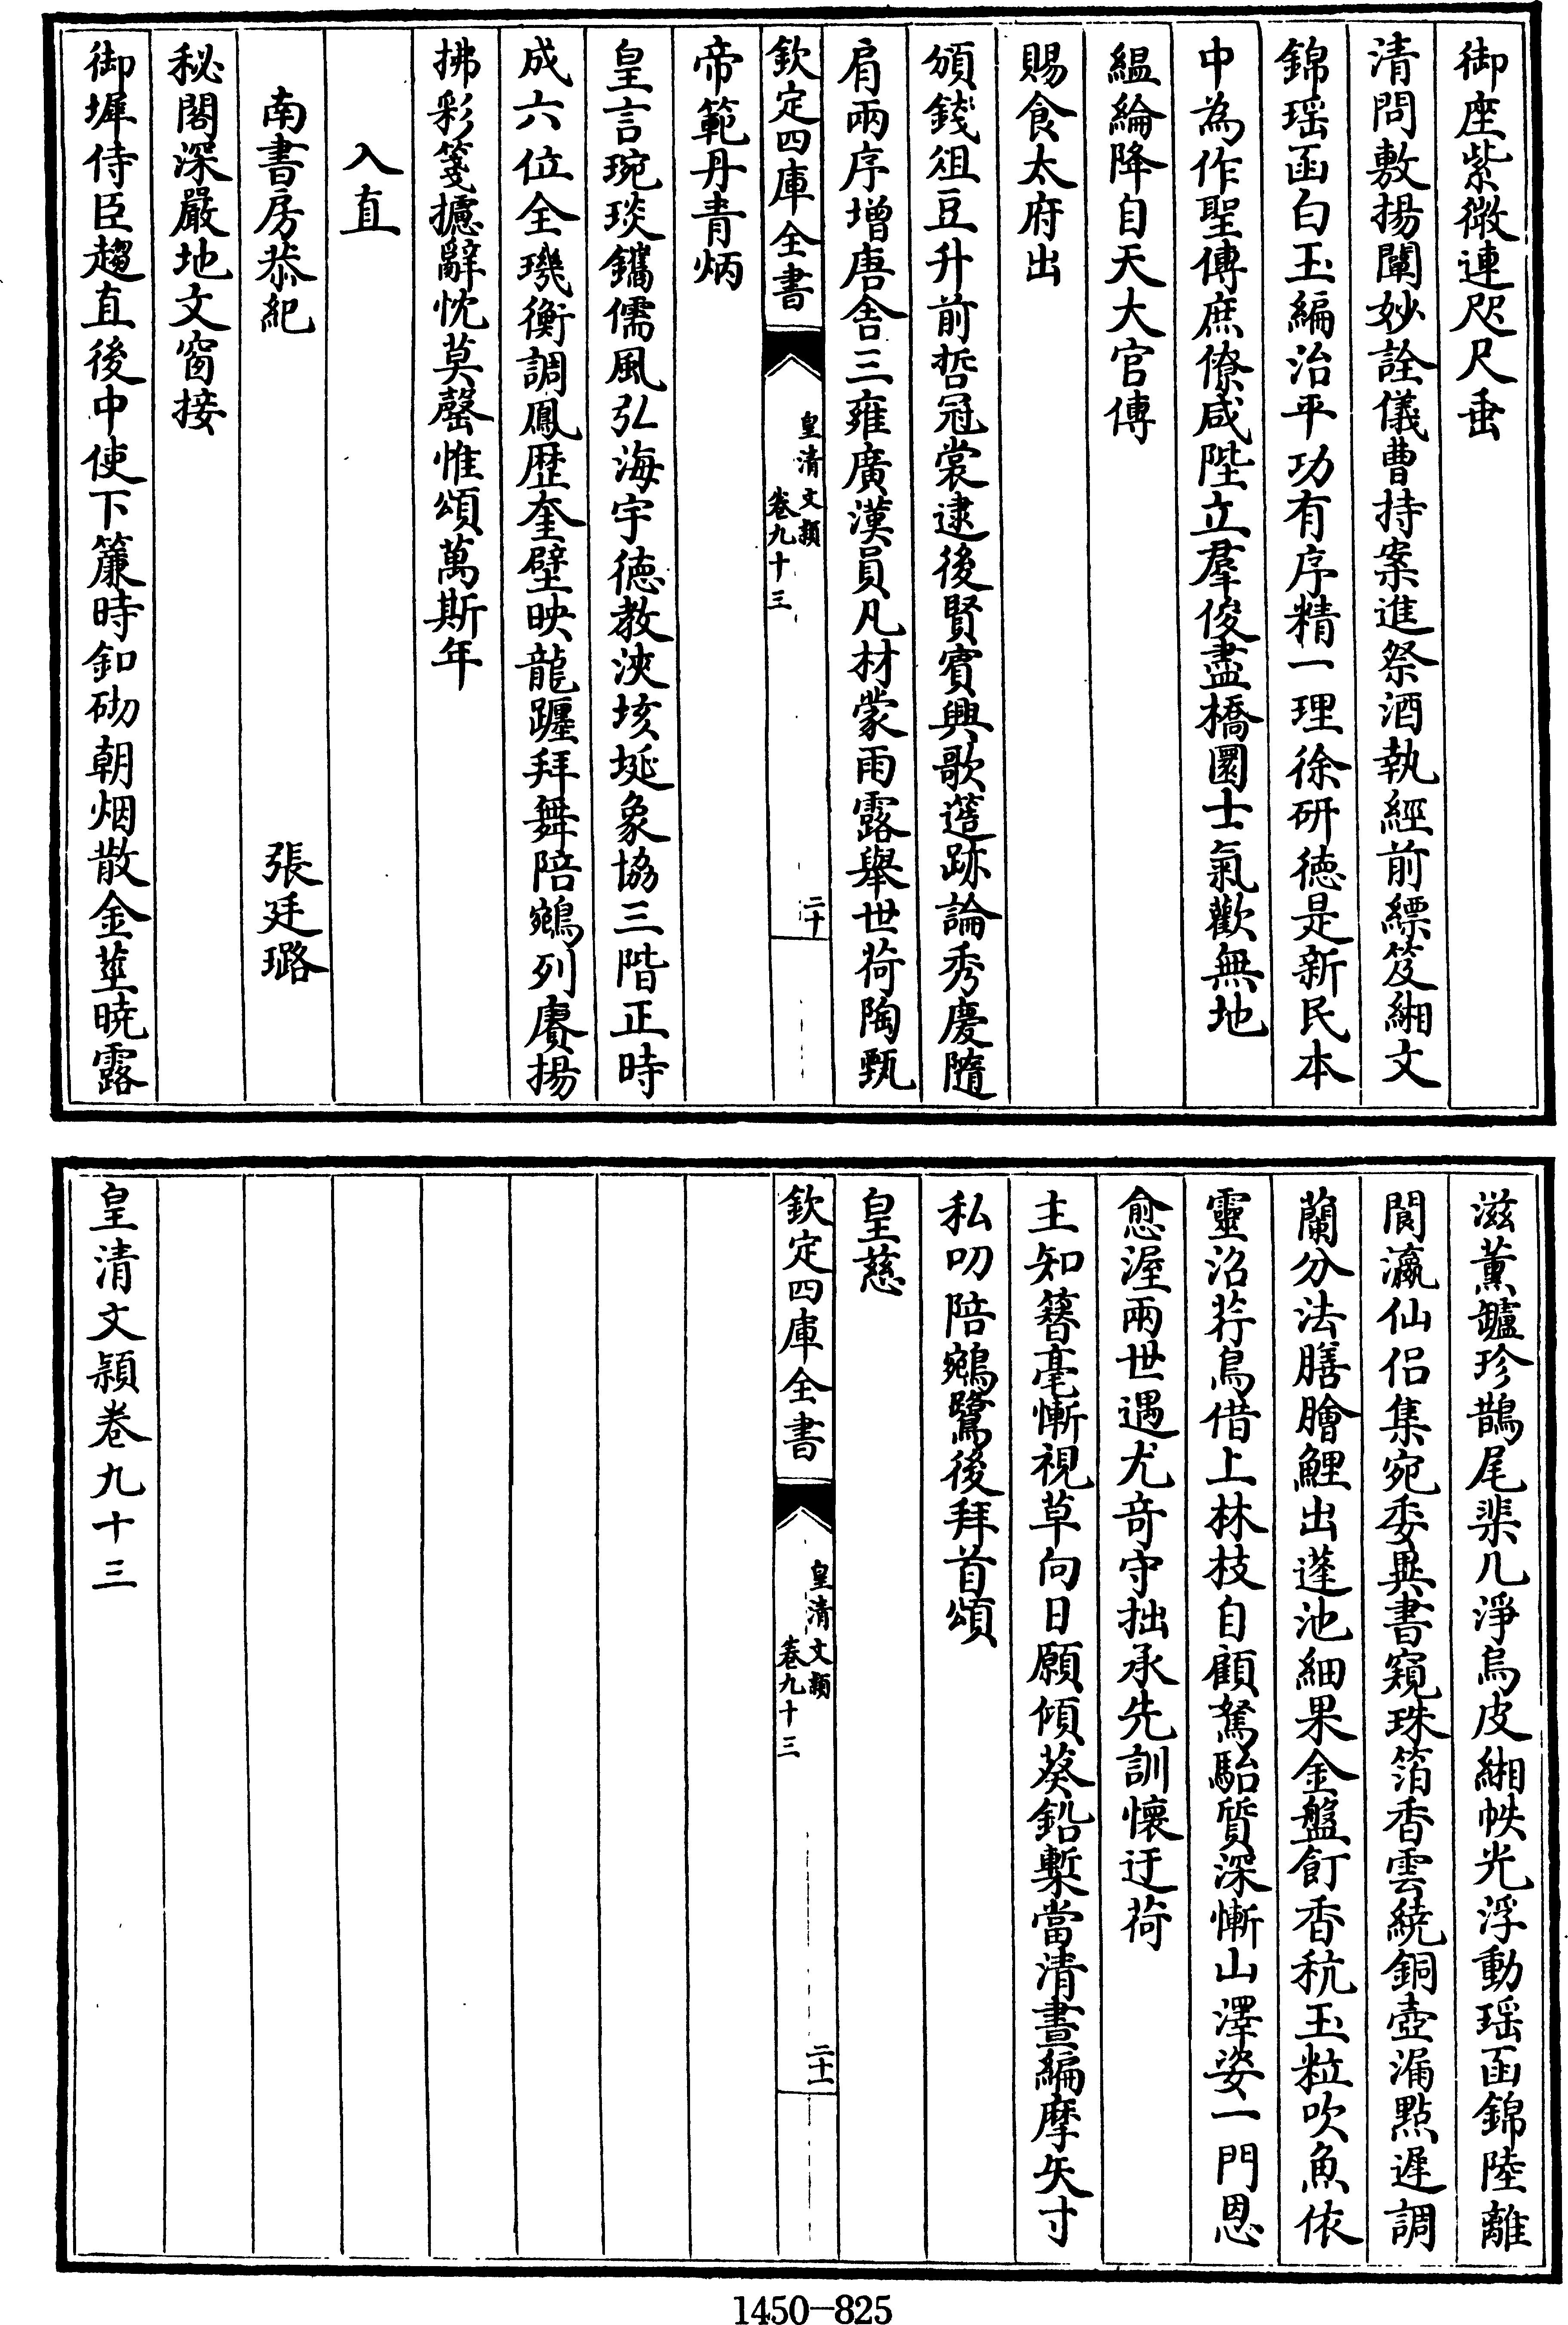 御座紫微連咫尺垂
清問敷揚闡妙詮儀曹持案進祭酒執經前縹笈緗文
錦瑶函白玉編治平功有序精一理徐研徳是新民本
中為作聖傳庶僚咸陛立羣俊盡橋圜士氣歡無地
緼綸降自天大官傳
賜食太府出
頒錢俎豆升前哲冠裳逮後賢賓興歌蹧跡論秀慶隨
肩兩序增唐舎三雍廣漢員凡材蒙雨露舉世荷陶甄
欽定四庫全書
皇清文穎
卷九十三
二十
帝範丹青炳
皇言琬琰鐫儒風弘海宇徳教浹垓埏象協三階正時
成六位全璣衡調鳳歴奎壁映龍躔拜舞陪鵷列賡揚
拂彩箋攄辭忱莫罄惟頌萬斯年
入直
南書房恭紀 張廷璐
秘閣深嚴地文窗接
御墀侍臣趨直後中使下簾時釦砌朝烟散金莖暁露
滋薰罏珍鵲尾棐几淨烏皮緗帙光浮動瑶函錦陸離
閬瀛仙侣集宛委異書窺珠箔香雲繞銅壺漏點遲調
蘭分法膳膾鯉出蓬池細果金盤飣香秔玉粒吹魚依
靈沼荇鳥借上林枝自顧駑駘質深慚山澤姿一門恩
愈渥兩世遇尤竒守拙承先訓懷迂荷
主知簪毫慚視草向日願傾葵鉛槧當清晝編摩矢寸
私叨陪鵷鷺後拜首頌
皇慈
欽定四庫全書
皇清文穎
卷九十三
二十一
皇清文穎卷九十三
1450—825